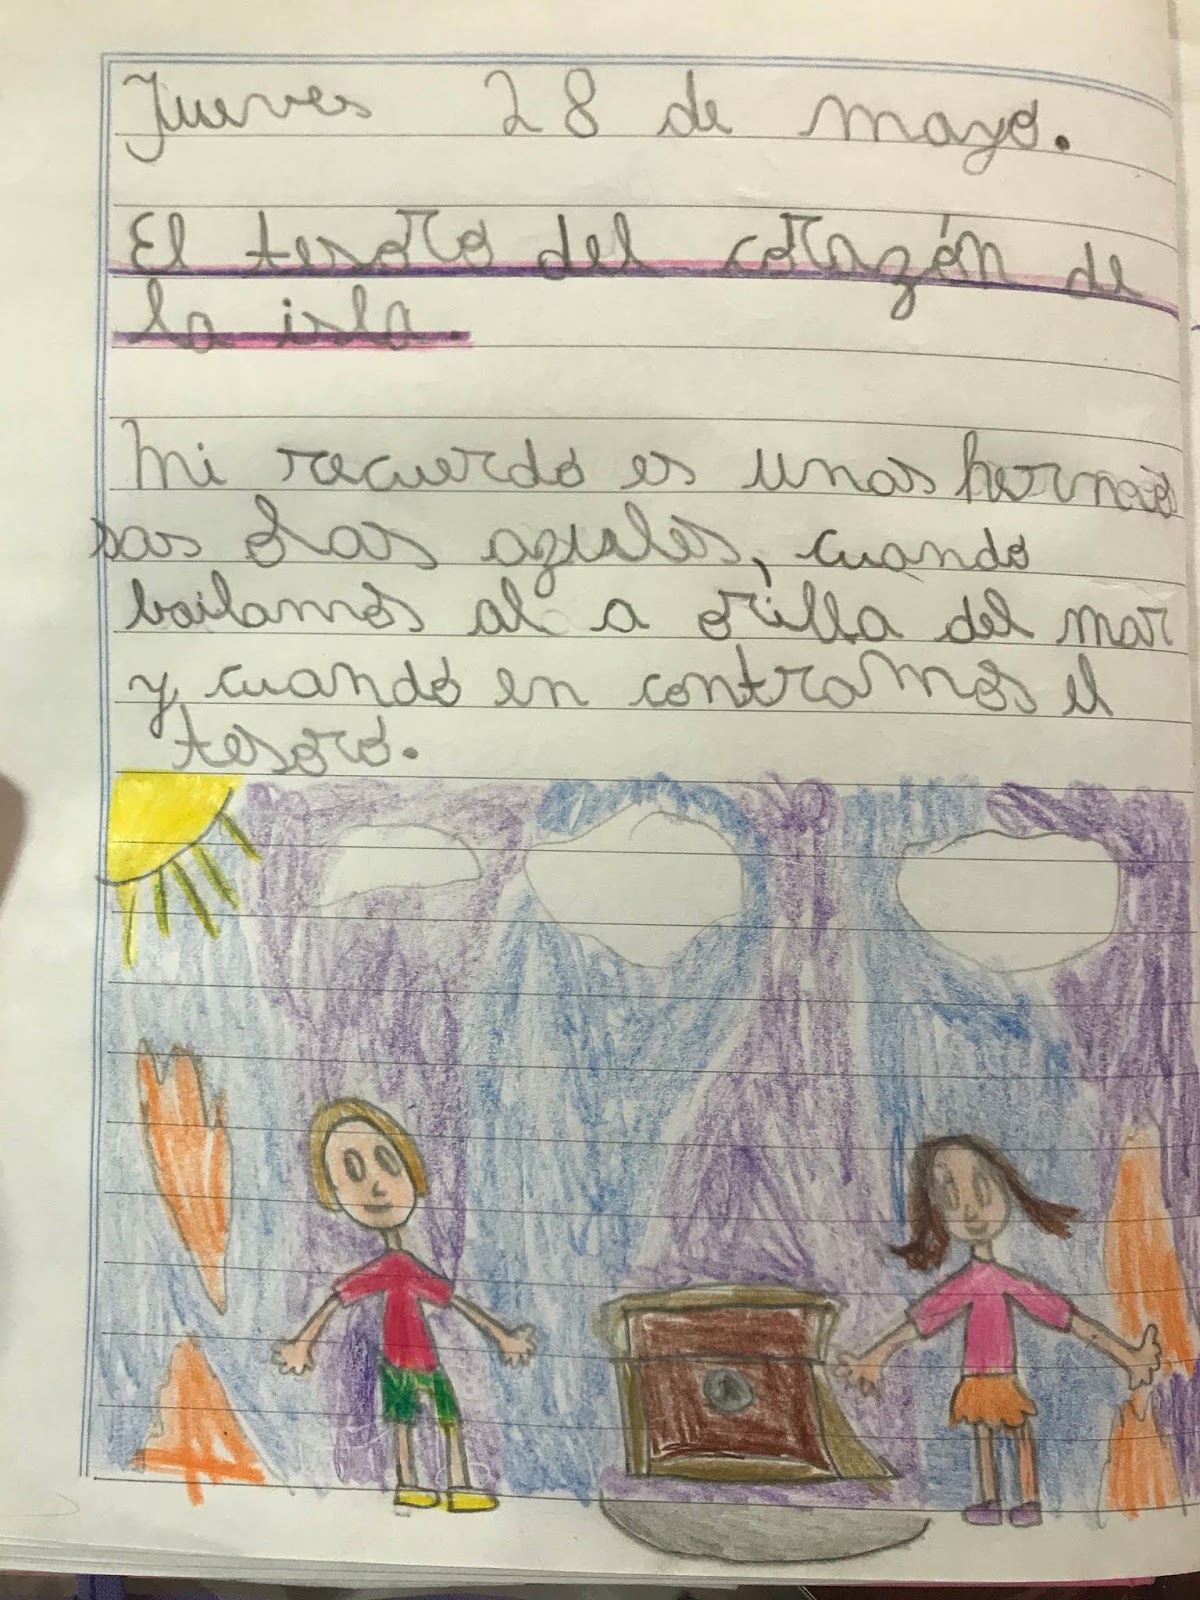 Jueves 28 de mayo.
El tesoro del corazón de
la isla.
Mi recuerdo es unas hermo
sas olas azules, cuando
bailamos al a orilla del mar
y cuando en contramos el
tesoro.